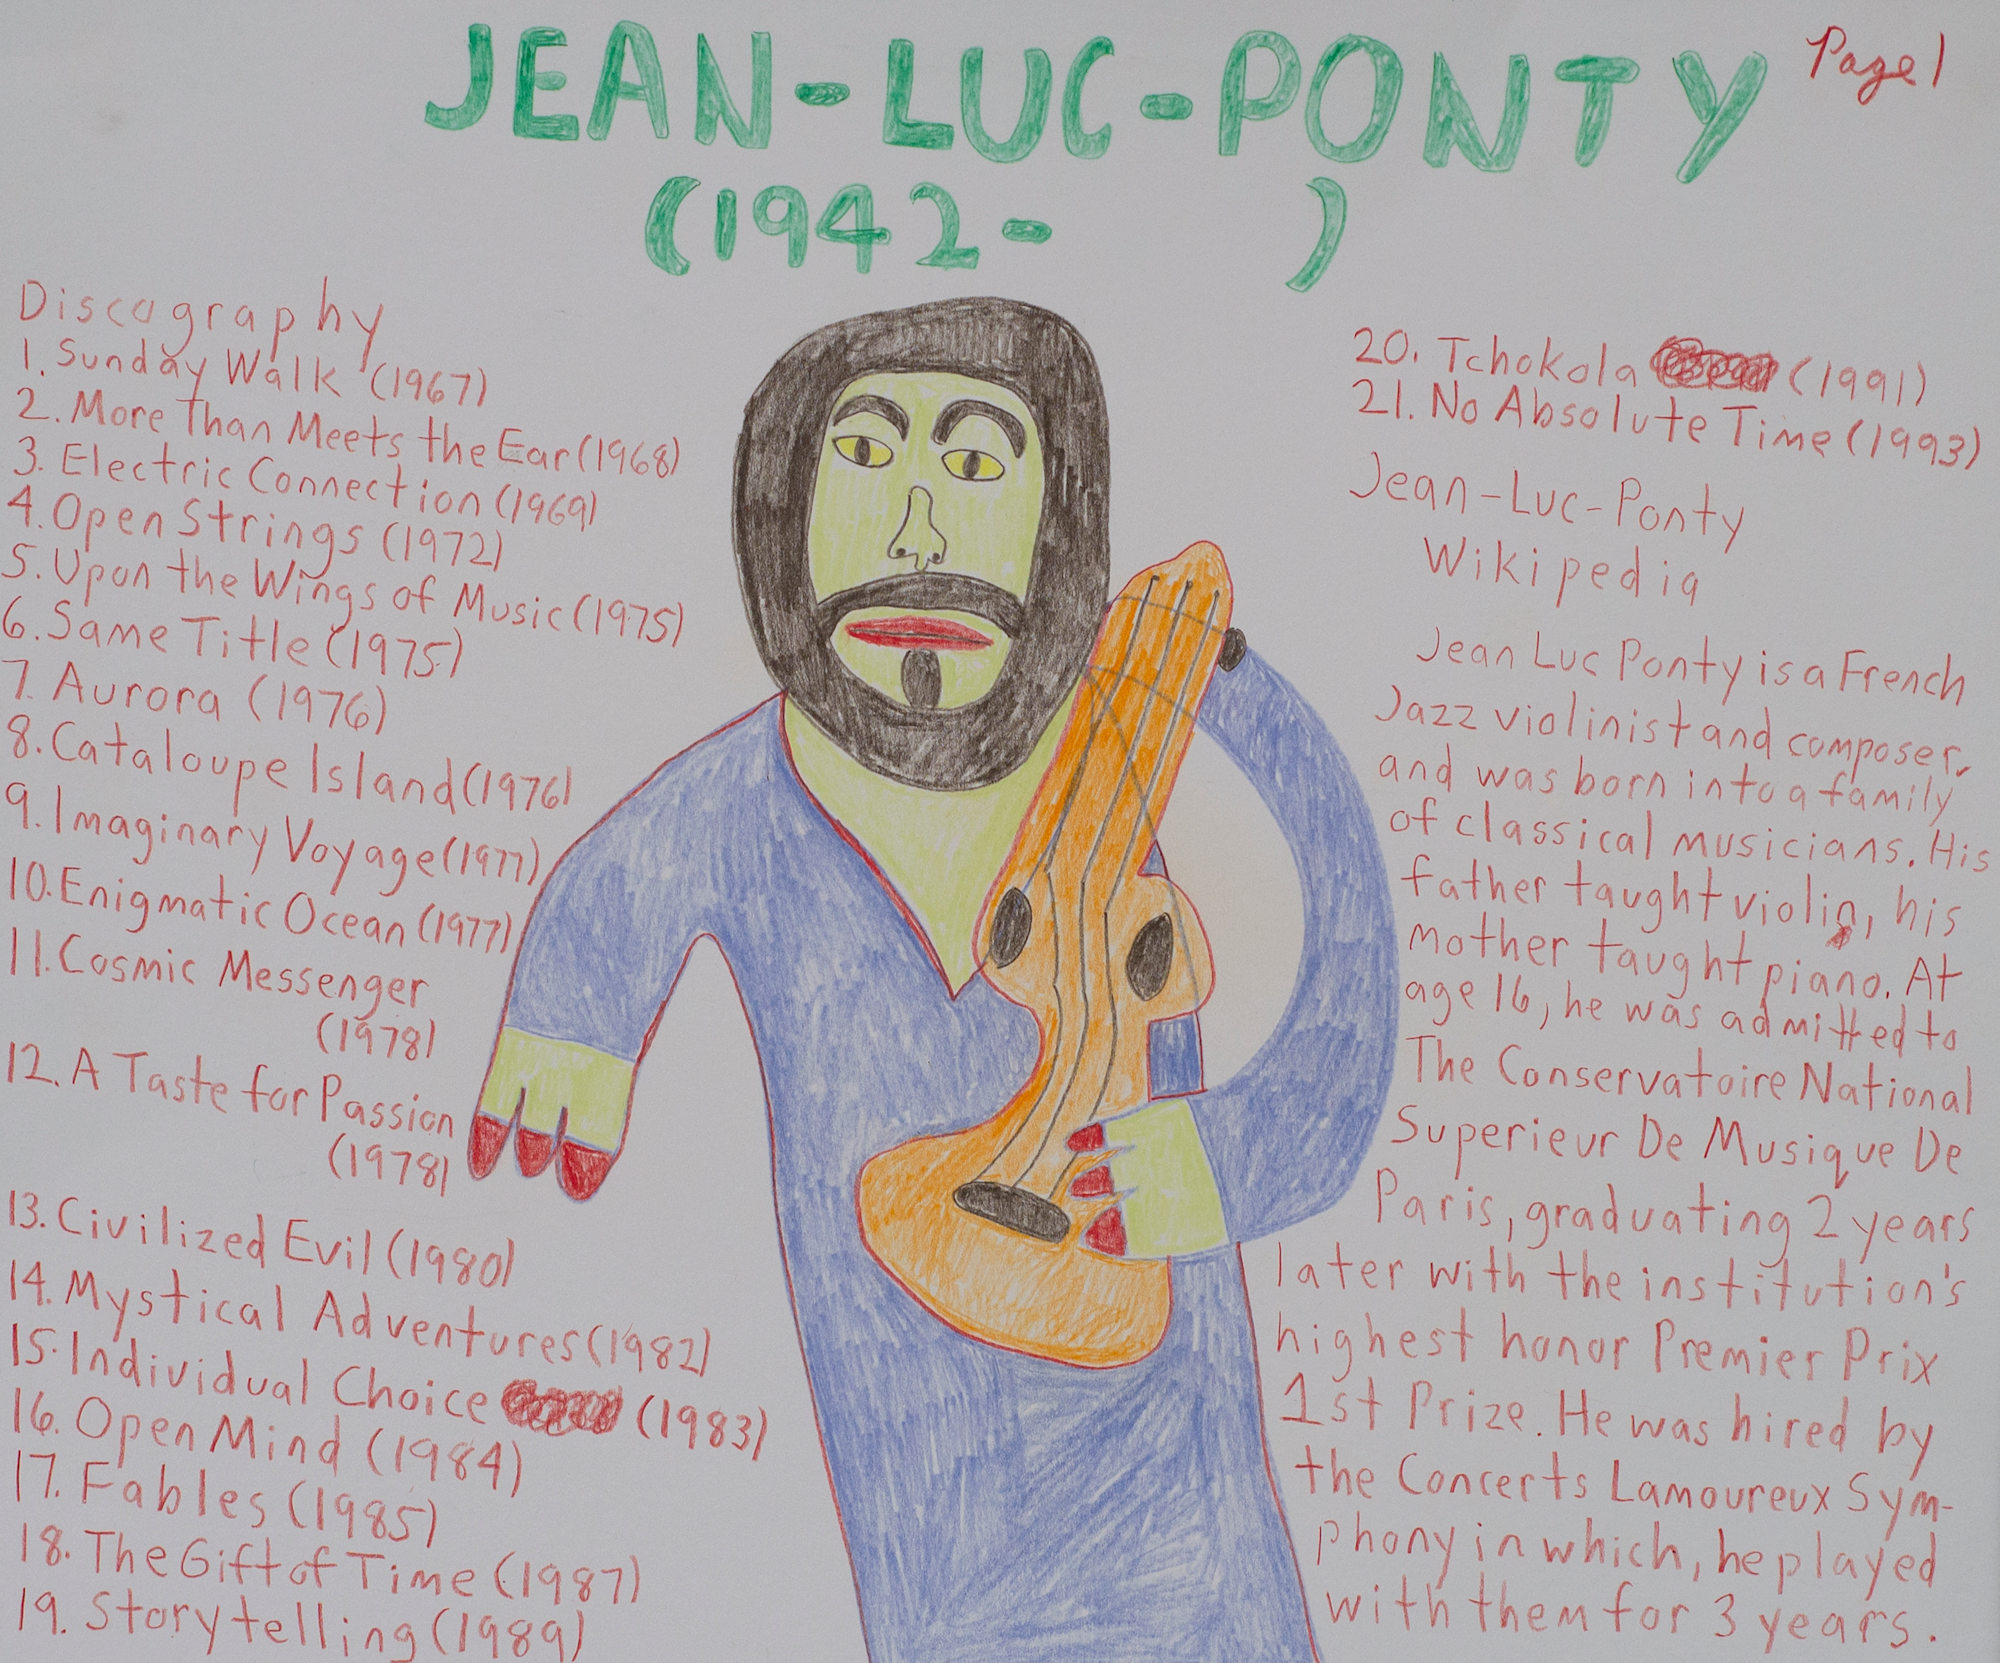 JEAN-LUC-PONTY
Page 1
(1942- )
Discography
1. Sunday Walk (1967)
2. More Than Meets the Ear (1968)
3. Electric Connection (1969)
4. Open Strings (1972)
5. Upon the Wings of Music (1975)
6. Same Title (1975)
7. Aurora (1976)
8. Cataloupe Island (1976)
9. Imaginary Voyage (1977)
10. Enigmatic Ocean (1977)
11. Cosmic Messenger
(1978)
12. A Taste for Passion
(1978)
13. Civilized Evil (1980)
14. Mystical Adventures (1982)
15. Individual Choice (1983)
16. Open Mind (1984)
17. Fables (1985)
18. The Gift of Time (1987)
19. Storytelling (1989)
20. Tchokola (1991)
21. No Absolute Time (1993)
Jean-Luc-Ponty
Wikipedia
Jean Luc Ponty is a French
Jazz violinist and composer,
and was born into a family
of classical musicians. His
father taught violin, his
mother taught piano. At
age 16, he was admitted to
The Conservatoire National
Superieur De Musique De
Paris, graduating 2 years
later with the institution's
highest honor Premier Prix
1st Prize. He was hired by
the Concerts Lamoureux Sym-
phony in which, he played
with them for 3 years.